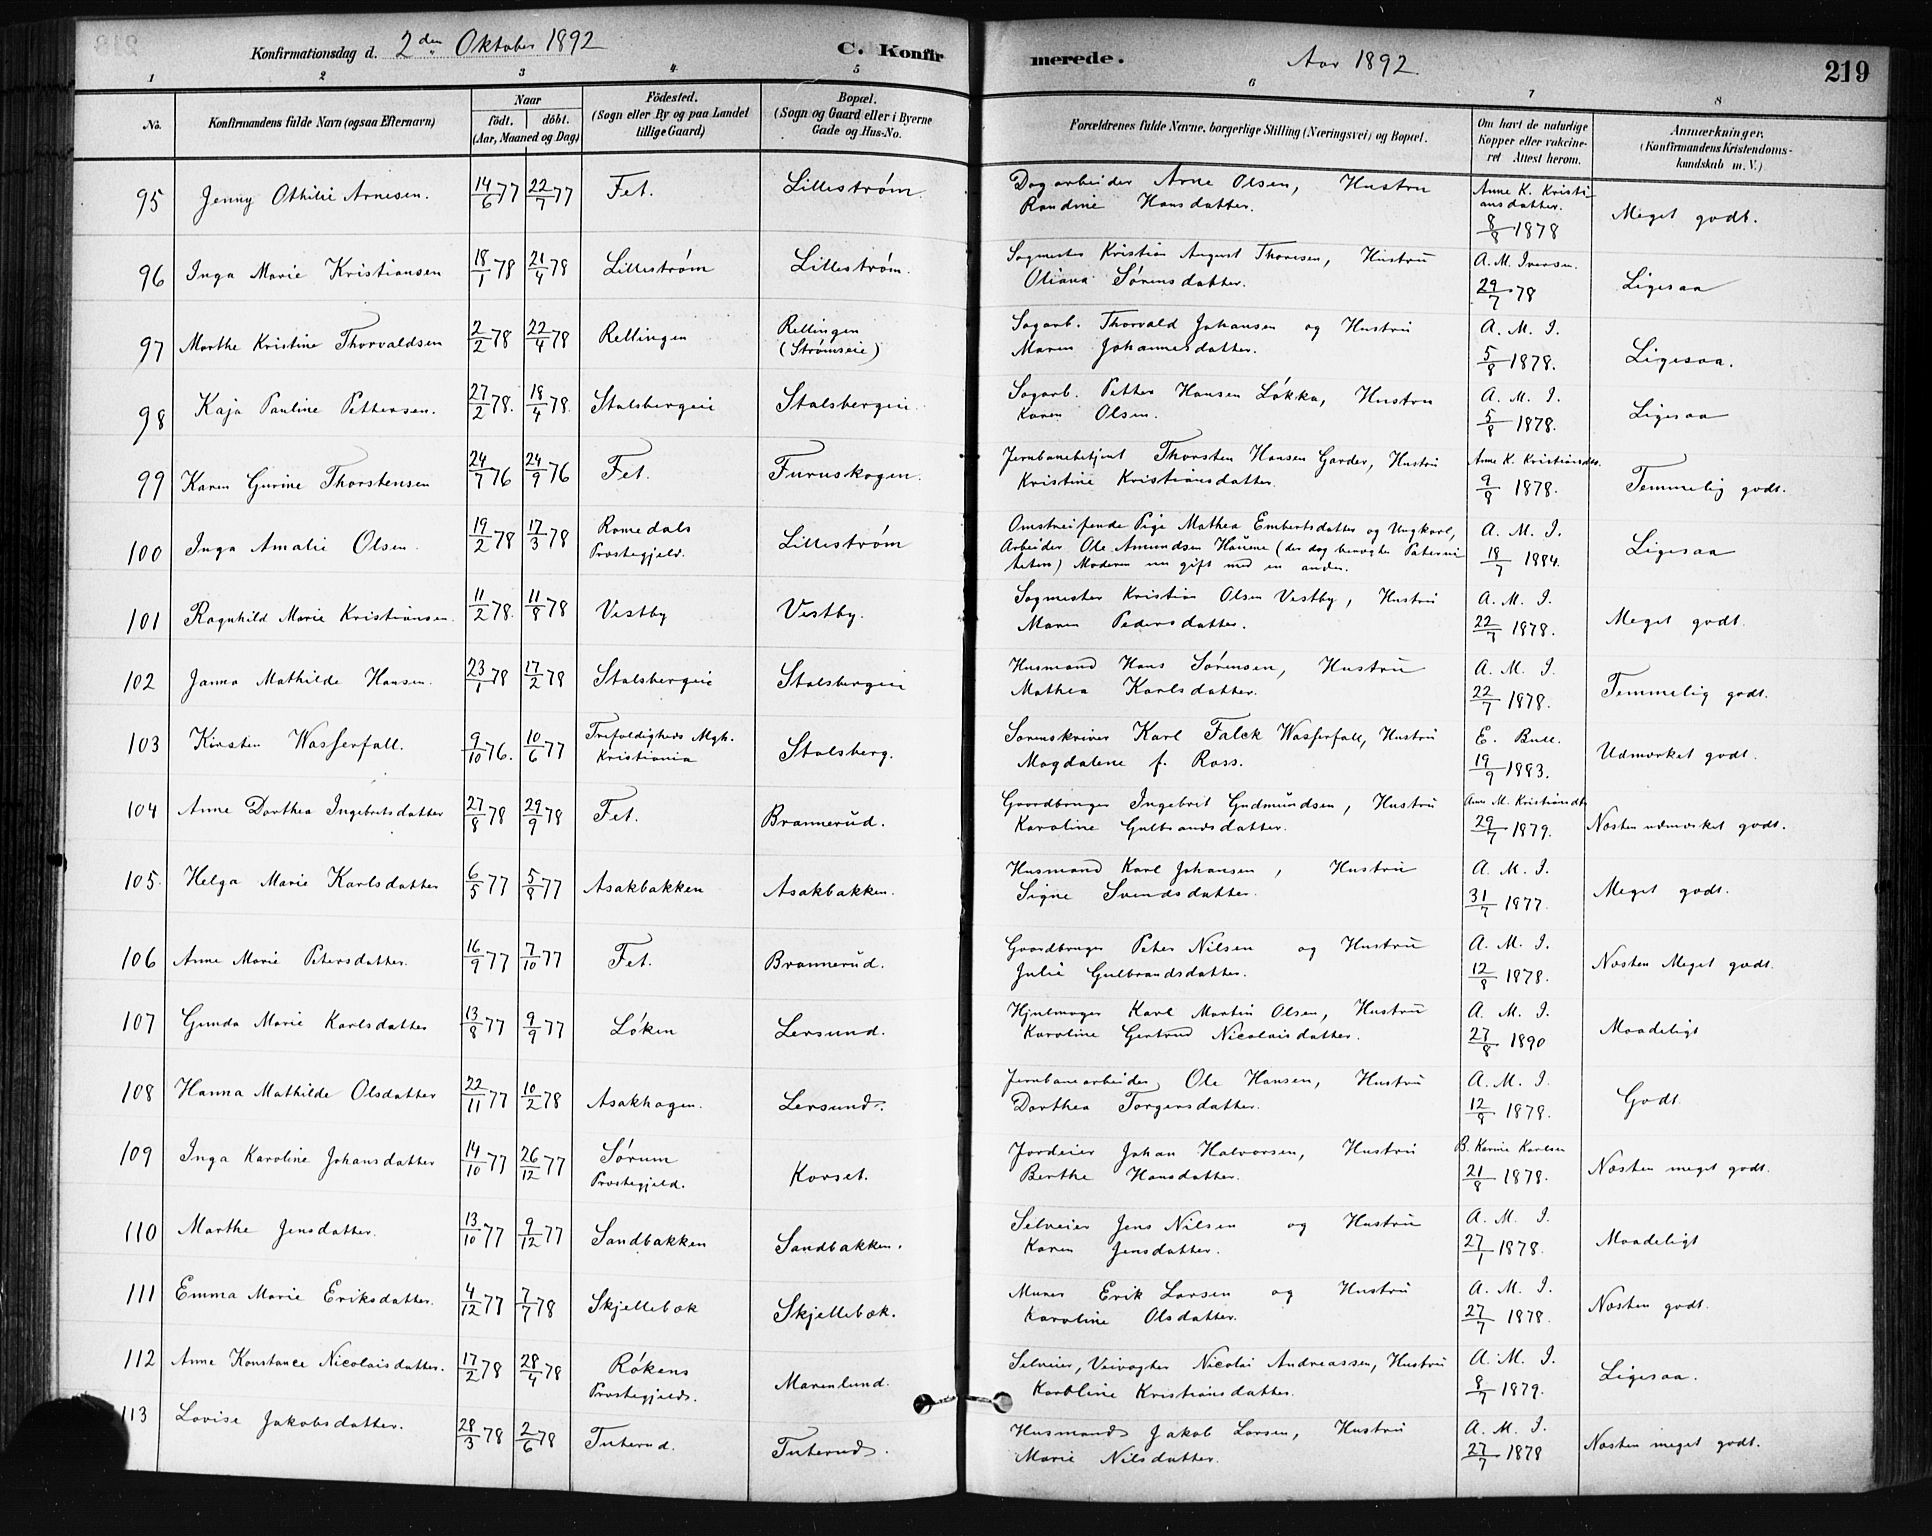 Konfirmationsdag d. 2den Oktober 1892 C. Konfirmerede. Aar 1892. 219
1 2 3 4 5 6 7 8
No. Konfirmandens fulde Navn (ogsaa Efternavn) Naar födt. döbt. (Aar, Maaned og Dag) Födested. (Sogn eller By og paa Landet tillige Gaard) Bopæl. (Sogn og Gaard eller i Byerne Gade og Hus-No. Forældrenes fulde Navne, borgerlige Stilling (Næringsvei) og Bopæl. Om havt de naturlige Kopper eller vakcineret Attest herom. Anmærkninger. (Konfirmandens Kristendomskundskab m. V.)
95 Jenny Othilie Arnesen. 14/6 77 22/7 77 Fet. Lillestrøm. Dagarbeider Arne Olsen, Hustru Randine Hansdatter. Anne K. Kristiansdatter. 8/8 1878 Meget godt.
96 Inga Marie Kristiansen 18/1 78 21/4 78 Lillestrøm Lillestrøm. Sagmester Kristian August Thoresen, Hustru Oliana Sørensdatter. A. M. Iversen. 29/7 78 Ligesaa
97 Marthe Kristine Thorvaldsen 2/2 78 22/4 78 Rellingen Rellingen (Strømseie) Sagarb. Thorvald Johansen og Hustru Maren Johannesdatter. A. M. I. 5/8 1878. Ligesaa.
98 Kaja Pauline Pettersen. 27/2 78. 18/4 78. Stalsbergeie Stalsbergeie. Sagarb. Petter Hansen Løkka, Hustru Karen Olsen. A. M. I. 5/8 1878. Ligesaa
99 Karen Gurine Thorstensen 24/7 76 24/9 76 Fet. Furuskogen. Jernbanebetjent Thorsten Hansen Garder, Hustru Kristine Kristiansdatter. Anne K. Kristiansdtr. 9/8 1878. Temmelig godt.
100 Inga Amalie Olsen. 19/2 78 17/3 78 Romedals Prestegjeld. Lillestrøm Omstreifende Pige Mathea Embertsdatter og Ungkarl, Arbeider Ole Amundsen Hauene (der dog benegter Paterniteten) Moderen nu gift med en anden. A. M. I. 18/7 1884. Ligesaa
101 Ragnhild Marie Kristiansen. 11/2 78. 11/8 78 Vestby Vestby. Sagmester Kristian Olsen Vestby, Hustru Maren Pedersdatter. A. M. I. 22/7 1878. Meget godt.
102 Janna Mathilde Hansen. 23/1 78 17/2 78 Stalsbergeie Stalsbergeie Husmand Hans Sørensen, Hustru Mathea Karlsdatter. A. M. I. 22/7 1878. Temmelig godt.
103 Kirsten Wasserfall. 9/10 76. 10/6 77 Trefoldigheds Mgh. Kristiania Stalsberg. Sorenskriver Karl Falck Wasserfall, Hustru Magdalene f. Ross. E. Bull. 19/9 1883. Udmærket godt.
104 Anne Dorthea Ingebretsdatter 27/8 78 29/9 78 Fet. Brannerud. Gaardbruger Ingebrit Gudmundsen, Hustru Karoline Gulbrandsdatter. Anne M. Kristiansdtr. 29/7 1879. Næsten udmærket godt.
105. Helga Marie Karlsdatter 6/5 77 5/8 77 Asakbakken Asakbakken. Husmand Karl Johansen, Hustru Signe Svendsdatter. A. M. I. 31/7 1877. Meget godt.
106 Anne Marie Petersdatter. 16/9 77 7/10 77 Fet. Brannerud. Gaardbruger Peter Nilsen og Hustru Julie Gulbrandsdatter. A. M. I. 12/8 1878. Næsten Meget godt.
107 Gunda Marie Karlsdatter 13/8 77 9/9 77 Løken Lersund. Hjulmager Karl Martin Olsen, Hustru Karoline Gertrud Nicolaisdatter. A. M. I. 27/8 1890 Maadeligt
108 Hanna Mathilde Olsdatter 22/11 77 10/2 78 Asakhagen. Lersund. Jernbanearbeider Ole Hansen, Hustru Dorthea Torgersdatter. A. M. I. 12/8 1878. Godt.
109 Inga Karoline Johansdatter 14/10 77 26/12 77 Sørum Prestegjeld. Korset. Jordeier Johan Halvorsen, Hustru Berthe Hansdatter. B. Karine Karlsen 21/8 1878. Næsten meget godt.
110 Marthe Jensdatter. 13/10 77 9/12 77 Sandbakken Sandbakken. Selveier Jens Nilsen og Hustru Karen Jensdatter. A. M. I. 27/1 1878. Maadeligt
111 Emma Marie Eriksdatter. 4/12 77 7/7 78 Skjellebæk Skjellebæk. Murer Erik Larsen og Hustru Karoline Olsdatter. A. M. I. 27/7 1878. Næsten godt.
112 Anne Konstance Nicolaisdatter. 17/2 78 28/4 78 Røkens Prestegjelds. Marenlund. Selveier, Veivogter Nicolai Andreassen, Hustru Karoline Kristiansdatter. A. M. I. 8/7 1879. Ligesaa.
113 Lovise Jakobsdatter. 28/3 78 2/6 78 Tuterud. Tuterud. Husmand Jakob Larsen, Hustru Marie Nilsdatter. A. M. I. 27/7 1878 Næsten meget godt.